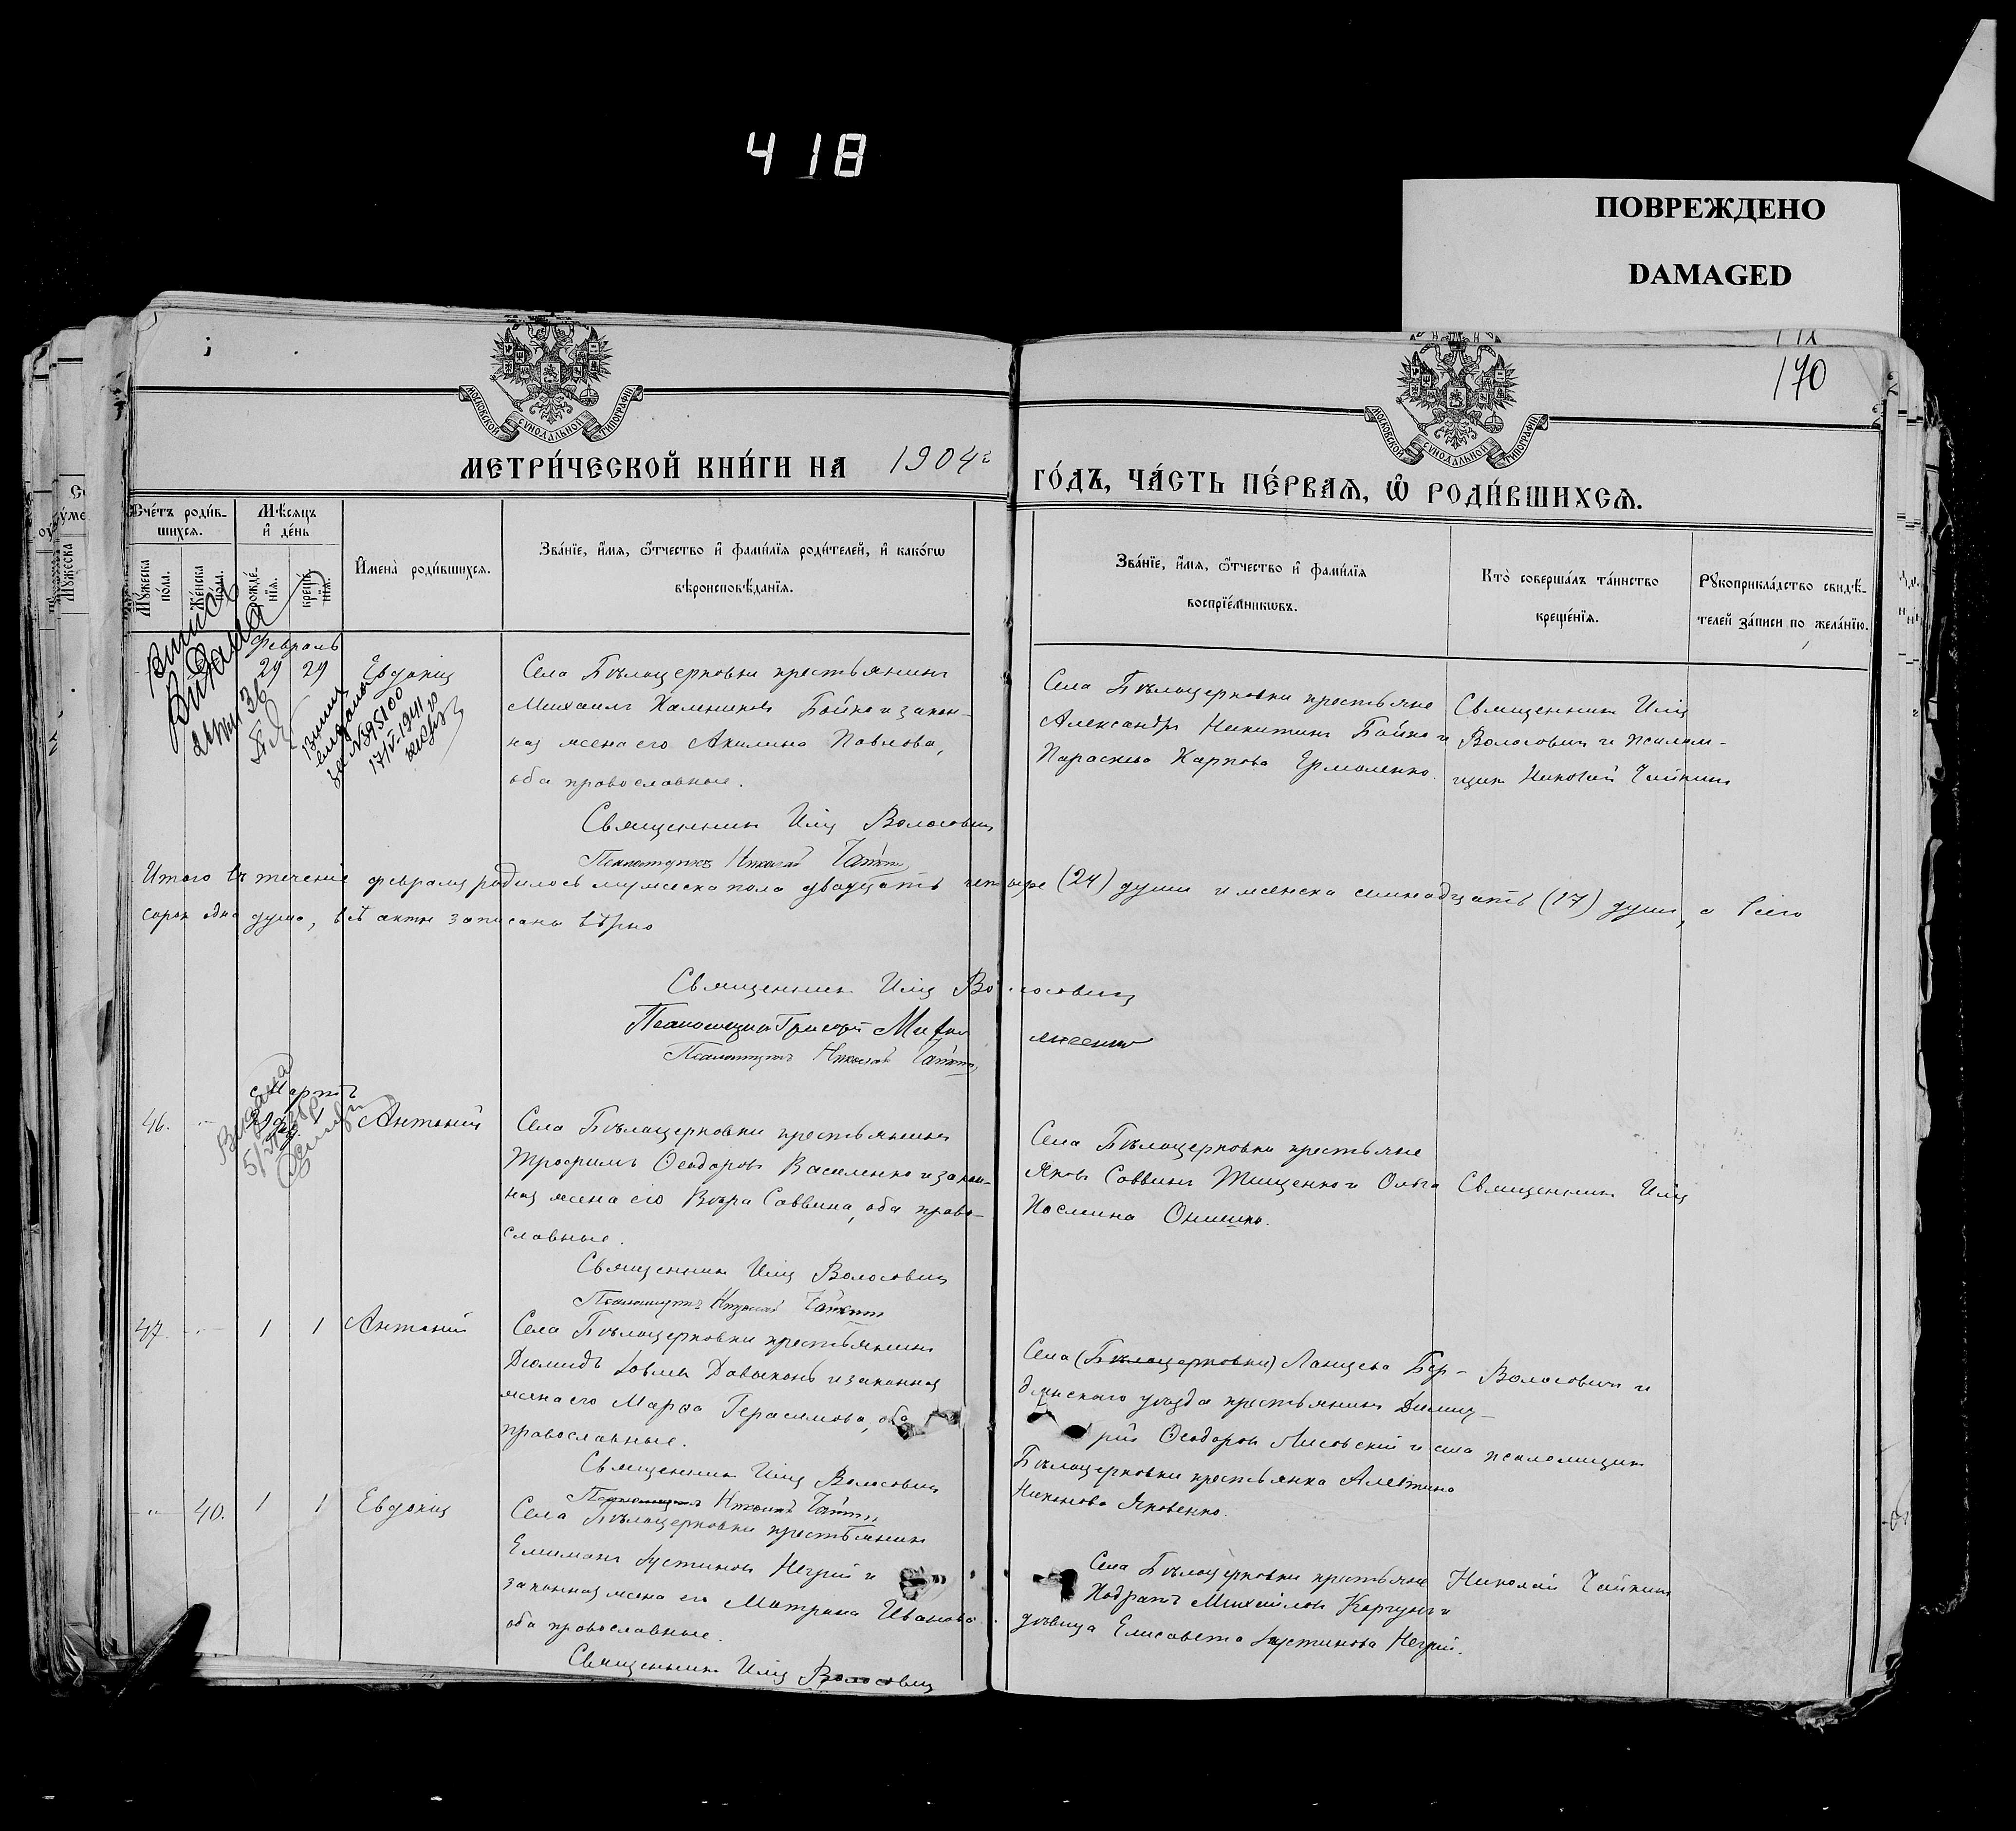 418
ПОВРЕЖДЕНО
DAMAGED
170
МОСКОВСКОЙ СУНОДАЛЬНОЙ ТИПОГРАФІИ
МОСКОВСКОЙ СУНОДАЛЬНОЙ ТИПОГРАФІИ
МЕТРИ́ЧЕСКОЙ КНИ́ГИ НА 1904 г
ГО́ДЪ, ЧА́СТЬ ПЕ́РВАѦ, Ѡ҆ РОДИ́ВШИХСѦ.
Сче́тъ роди́в-
шихсѧ.
Мѣ́сѧцъ
и҆ де́нь
Мꙋ́жеска
по́ла.
Же́нска
по́ла.
рожде́-
нїѧ.
креще́-
нїѧ.
И҆мена̀ роди́вшихсѧ.
Зва́нїе, и҆́мѧ, ѻ҆́тчество и҆ фами́лїѧ роди́телей, и҆ како́гѡ
вѣроисповѣ́данїѧ.
Зва́нїе, и҆́мѧ, ѻ҆́тчество и҆ фами́лїѧ
воспрїе́мникѡвъ.
Кто̀ соверша́лъ та́инство
креще́нїѧ.
Рꙋкоприкла́дство свидѣ́-
телей за́писи по жела́нїю.
Февраль
29 29 Евдокія
Села Бѣлоцерковки крестьянинъ
Михаилъ Калиниковъ Бойко и закон-
ная жена его Акилина Павлова,
оба православные.
Священникъ Илія Волосовичъ
Псаломщикъ Николай
Села Бѣлоцерковки крестьяне
Александръ Никитинъ Бойко и
Параскева Карпова Ермоленко.
Священникъ Илія
Волосовичъ и псалом-
щикъ Николай
Итого въ теченіе февраля родилось мужеска пола двадцать четыре (24) души и женска семнадцать (17) душъ, а всего
сорок одна душа, всѣ акты записаны вѣрно
Священникъ Илія Волосовичъ
Псаломщикъ Григорій
Псаломщикъ Николай
Мартъ
46. 1 Антоній
Села Бѣлоцерковки крестьянинъ
Трофимъ Ѳеодоровъ Василенко и закон-
ная жена его Вѣра Саввина, оба право-
славные.
Священникъ Илія Волосовичъ
Псаломщикъ Николай
Села Бѣлоцерковки крестьяне
Яковъ Саввинъ Тищенко и Ольга
Космина Онишко.
Священникъ Илія
47. 1 1 Антоній
Села Бѣлоцерковки крестьянинъ
Діомидъ Іовлевъ и законная
жена его Марѳа Герасимова, оба
православные.
Священникъ Илія Волосовичъ
Псаломщикъ Николай
Села (Бѣлоцерковки) Бер-
дянскаго уѣзда крестьянинъ Димит-
рій Ѳеодоровъ Лисовскій и села
Бѣлоцерковки крестьянка
Никонова Яковенко.
Волосовичъ и
псаломщикъ
40. 1 1 Евдокія
Села Бѣлоцерковки крестьянинъ
Іустиновъ Негрій и
законная жена его Матрона Иванова
оба православные.
Священникъ Илія Волосовичъ
Села Бѣлоцерковки крестьяне
Кодратъ Михайловъ и
дѣвица Елисавета Іустинова Негрій.
Николай